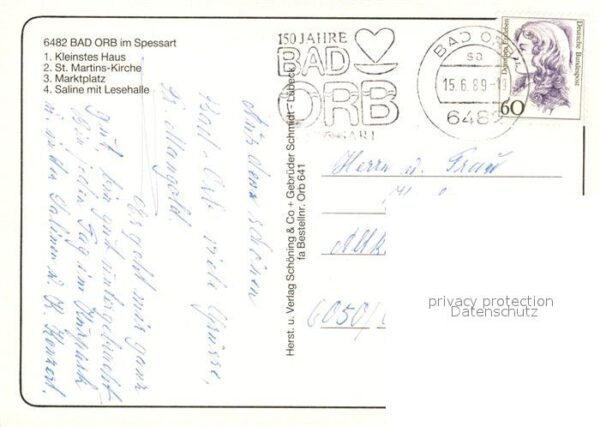 6482 BAD ORB im Spessart
1. Kleinstes Haus
2. St. Martins-Kirche
3. Marktplatz
4. Saline mit Lesehalle
150 JAHRE
BAD
ORB
BAD ORB
sa
15.6.89-1
648
Deutsche Bundespost
60
Herst. u. Verlag Schöning & Co + Gebrüder Schmidt - Lübeck
fa Bestellnr. Orb 641
Aus dem schönen
Bad-Orb viele Grüsse,
Mangold.
Es geht mir ganz
gut, bin gut untergebracht
Bin jeden Tag im Kurpark
in den Salinen u. K. Konzert.
Herrn u. Frau
6050/
privacy protection
Datenschutz